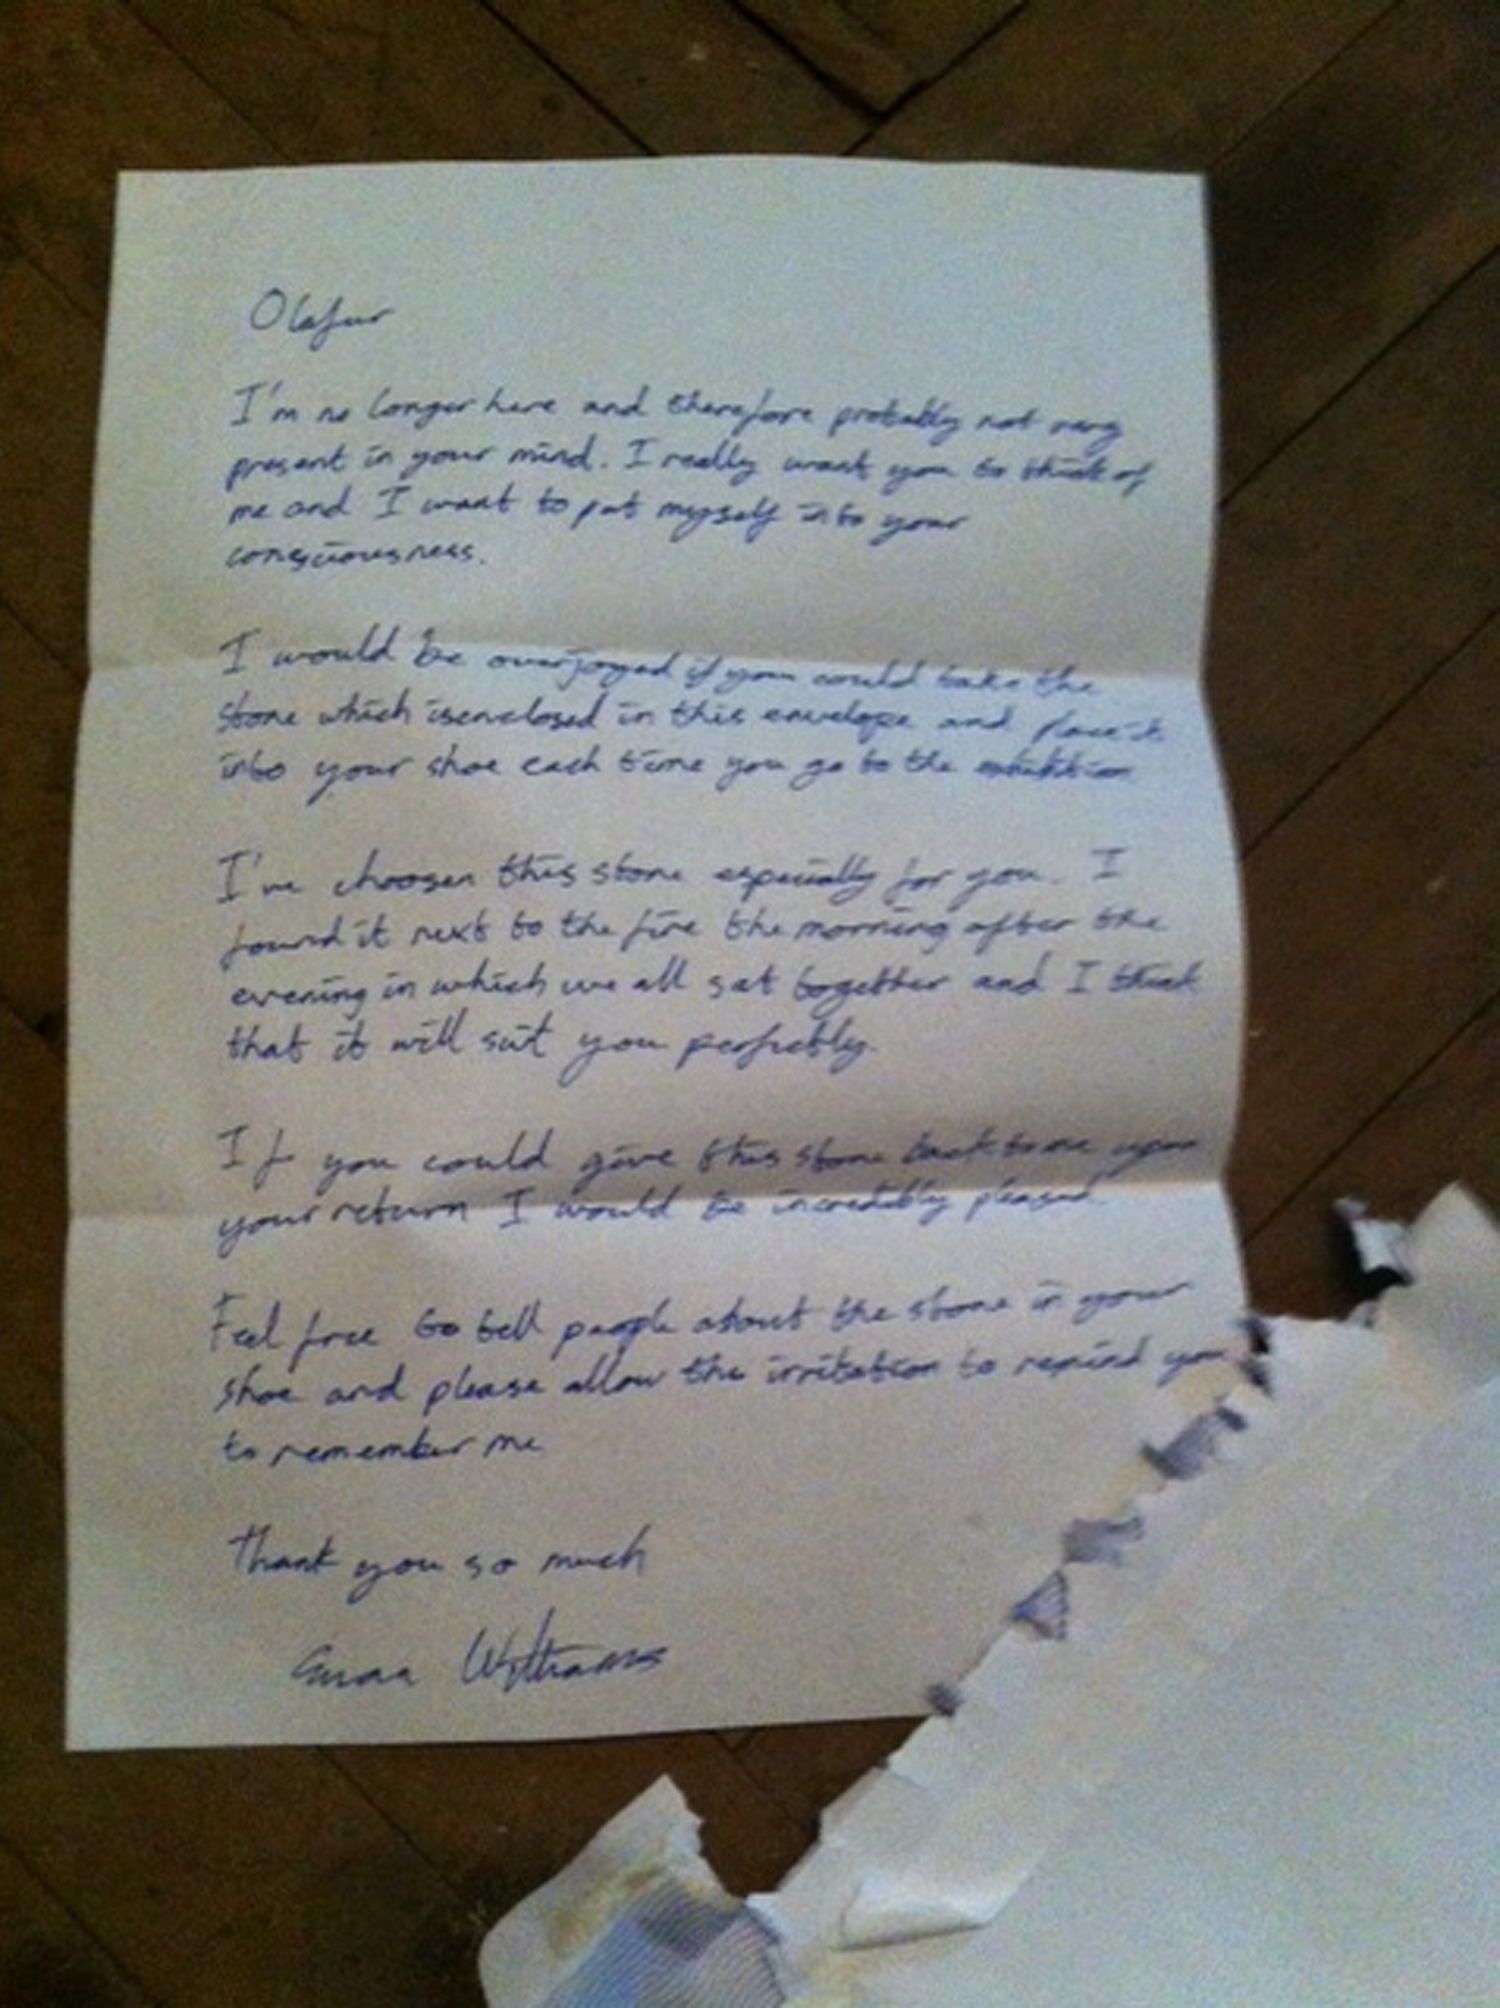 Olafur
I'm no longer here and therefore probably not very
present in your mind. I really want you to think of
me and I want to put myself into your
consciousness.
I would be overjoyed if you could take the
stone which is enclosed in this envelope and place it
into your shoe each time you go to the exhibition
I've choosen this stone especially for you. I
found it next to the fire the morning after the
evening in which we all sat together and I think
that it will suit you perfectly.
If you could give this stone back to me upon
your return I would be incredibly pleased.
Feel free to tell people about the stone in your
shoe and please allow the irritation to remind you
to remember me
Thank you so much
Williams